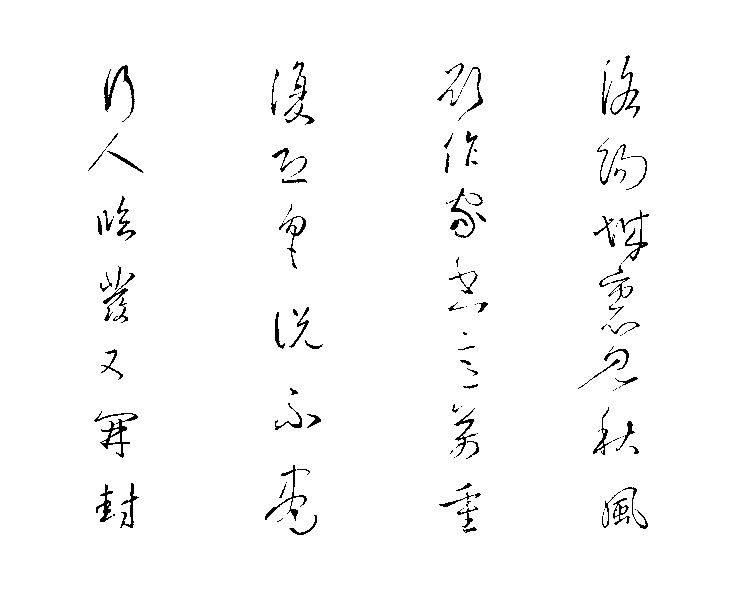 洛陽城裏見秋風
欲作家書意萬重
復恐匆匆說不盡
行人臨發又開封